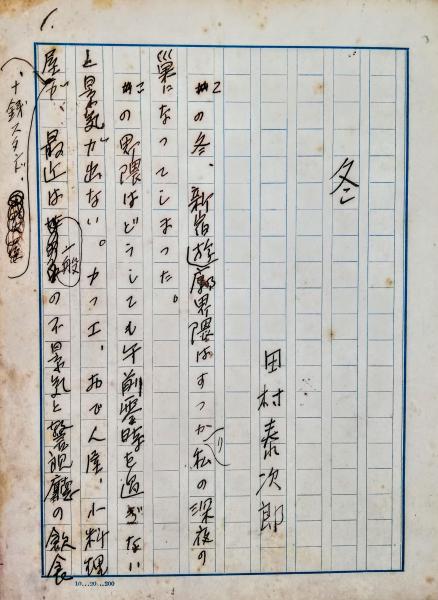 冬
田村泰次郎
この冬、新宿遊廓界隈はすつかり私の深夜の
巣になつてしまつた。
この界隈はどうしても午前零時を過ぎない
と景気が出ない。カフエ、おでん屋、小料理
屋が、最近は一般の不景気と警視廳の飲食
十銭スタンド、
10…20…200